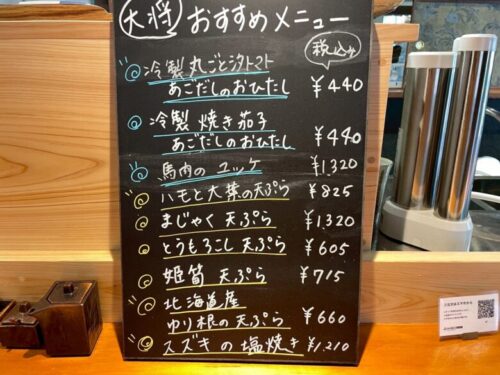 大将 おすすめメニュー
税込み
冷製丸ごと汐トマト
あごだしのおひたし ¥440
冷製 焼き茄子
あごだしのおひたし ¥440
馬肉の ユッケ ¥1,320
ハモと大葉の天ぷら ¥825
まじゃく 天ぷら ¥1,320
とうもろこし 天ぷら ¥605
姫筍 天ぷら ¥715
北海道産
ゆり根の天ぷら ¥660
スズキの塩焼き ¥1,210